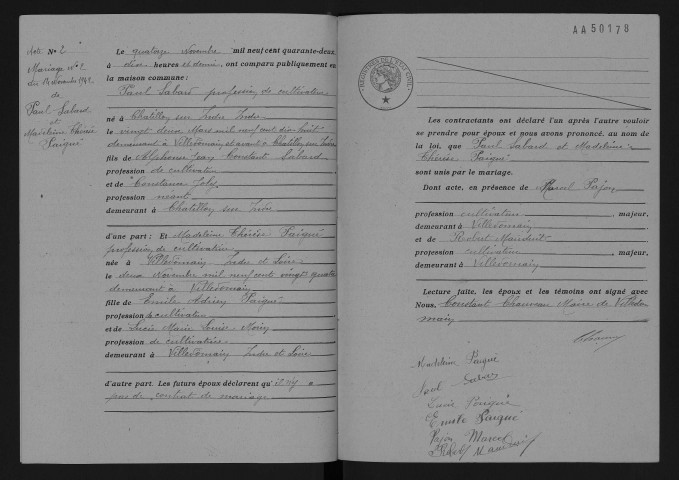 Acte N° 2
Mariage N° 2
du 14 Novembre 1942
de
Paul Sabard
et
Madeleine Thérèse
Paigué
Le quatorze Novembre mil neuf cent quarante-deux
à heures et demie, ont comparu publiquement en
la maison commune :
Paul Sabard profession de cultivateur
né à Châtillon sur Indre Indre
le vingt deux Mars mil neuf cent dix huit
demeurant à Villedomain et avant à Chatillon sur Indre
fils de Alphonse Jean Constant Sabard
profession de cultivateur
et de Constance Joly
profession néant
demeurant à Chatillon sur Indre
d'une part : Et Madeleine Thérèse Paigué
profession de cultivatrice
née à Villedomain Indre et Loire
le deux Novembre mil neuf cent vingt quatre
demeurant à Villedomain
fille de Emile Paigué
profession cultivateur
et de Lucie Marie Louise
profession de cultivatrice
demeurant à Villedomain Indre et Loire
d'autre part. Les futurs époux déclarent qu'il n'y a
pas de contrat de mariage
AA50178
Les contractants ont déclaré l'un après l'autre vouloir
se prendre pour époux et nous avons prononcé, au nom de
la loi, que Paul Sabard et Madeleine
Thérèse Paigué
sont unis par le mariage.
Dont acte, en présence de Marcel Pajou
profession cultivateur, majeur,
demeurant à Villedomain
et de Robert
profession cultivateur, majeur,
demeurant à Villedomain
Lecture faite, les époux et les témoins ont signé avec
Nous, Constant Chauveau Maire de Villedo
main
Madeleine Paigué
Sabard
Lucie Paigué
Emile Paigué
Pajou Marcel